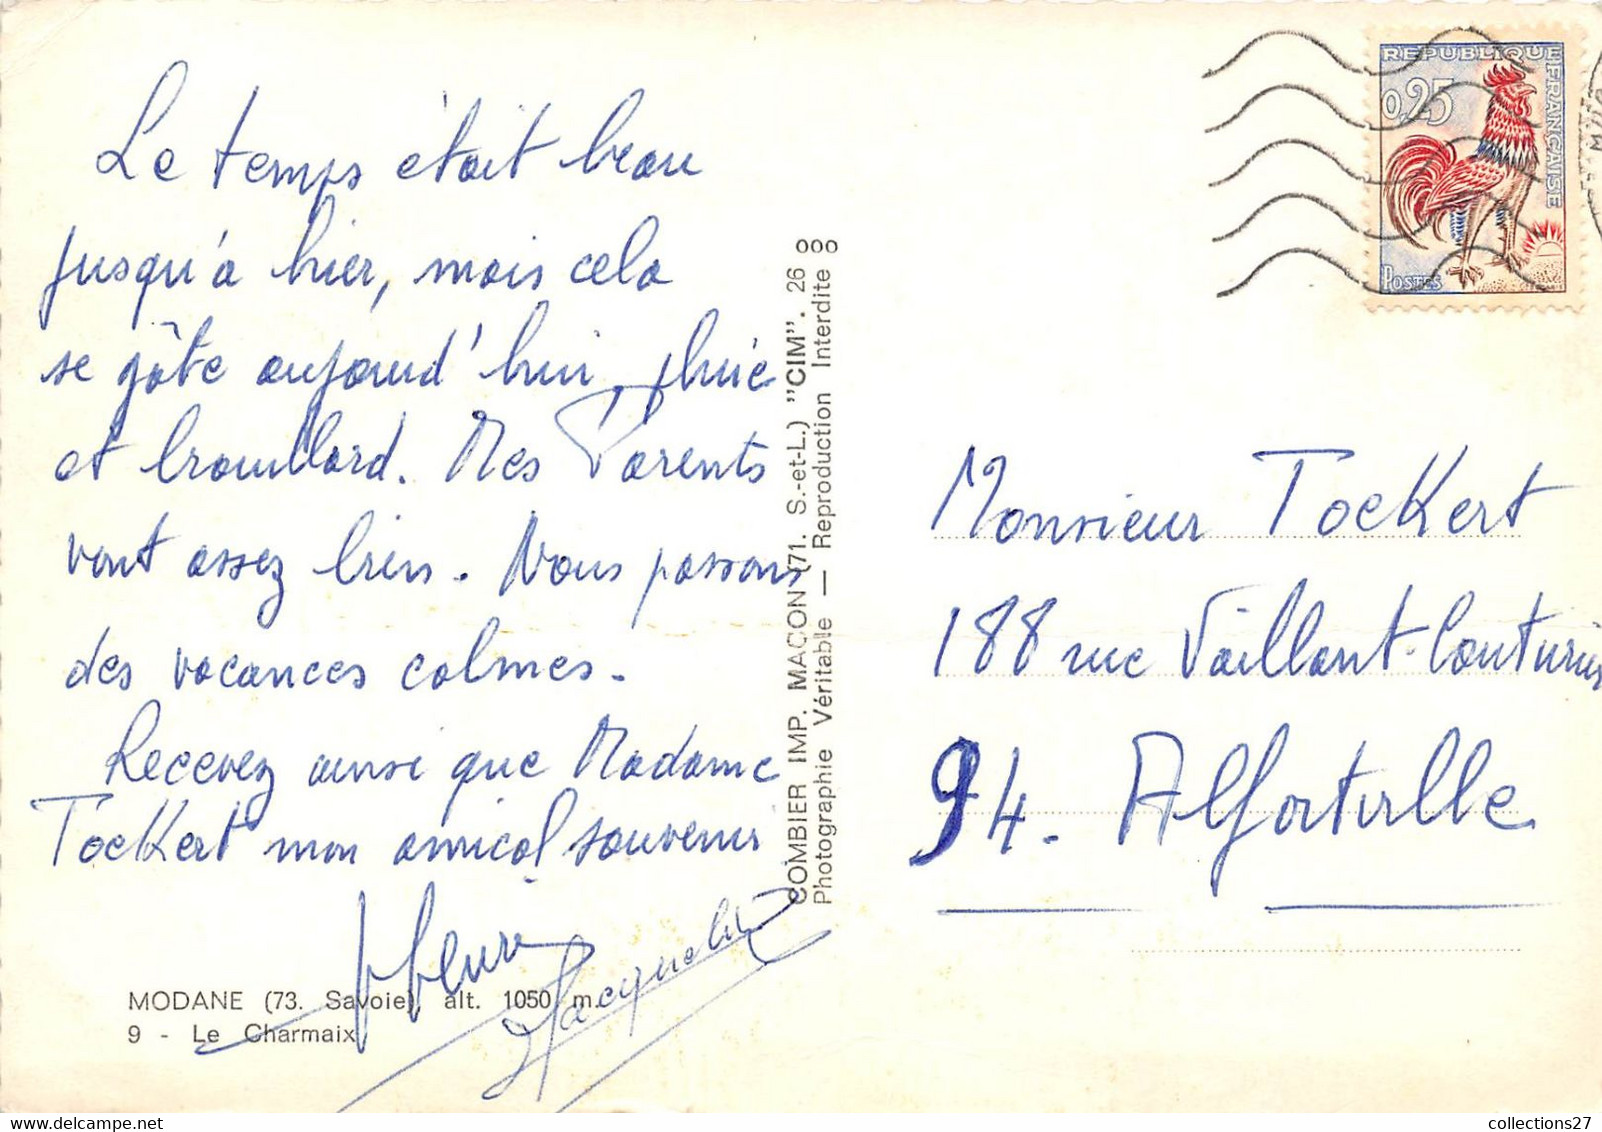 Le temps était beau
jusqu'à hier, mais cela
se gâte aujourd'hui, pluie
et brouillard. Mes Parents
vont assez bien. Nous passons
des vacances calmes.
Recevez ainsi que Madame
Tockert mon amical souvenir
Henri
Jacqueline
MODANE (73. Savoie) alt. 1050 m.
9 - Le Charmaix
COMBIER IMP. MACON (71. S.-et-L.) "CIM". 26
Photographie Véritable — Reproduction Interdite
REPUBLIQUE FRANÇAISE
0,25
POSTES
Monsieur Tockert
188 rue Vaillant-Couturier
94. Alfortville
collections27